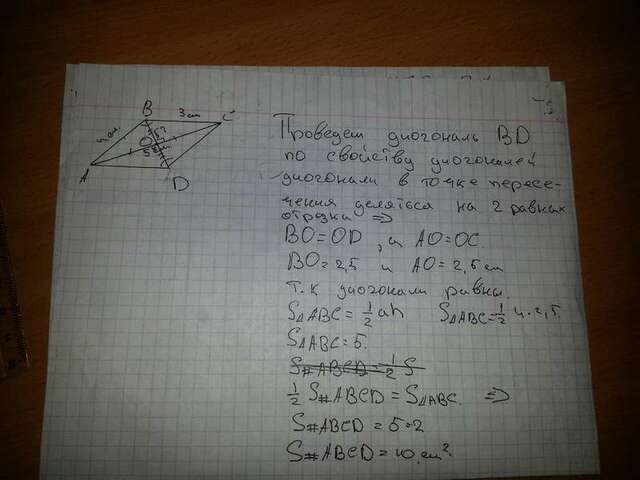 B
3 см
C
4 см.
O
A
D
Проведем диогональ BD
по свойству диогоналей
диогонали в точке пересе-
чения делятся на 2 равных
отрезка =>
BO=OD, и AO=OC.
BO=2,5 и AO=2,5 см
т.к диогонали равны.
S△ABC=1/2 ah S△ABC=1/2 4·2,5.
S△ABC=5.
S#ABCD=1/2 S
1/2 S#ABCD=S△ABC. =>
S#ABCD=5·2
S#ABCD=10 см².